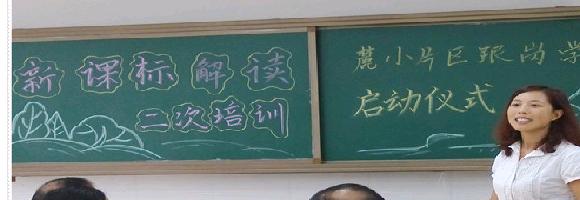 新课标解读
二次培训
麓小片区跟岗学
启动仪式